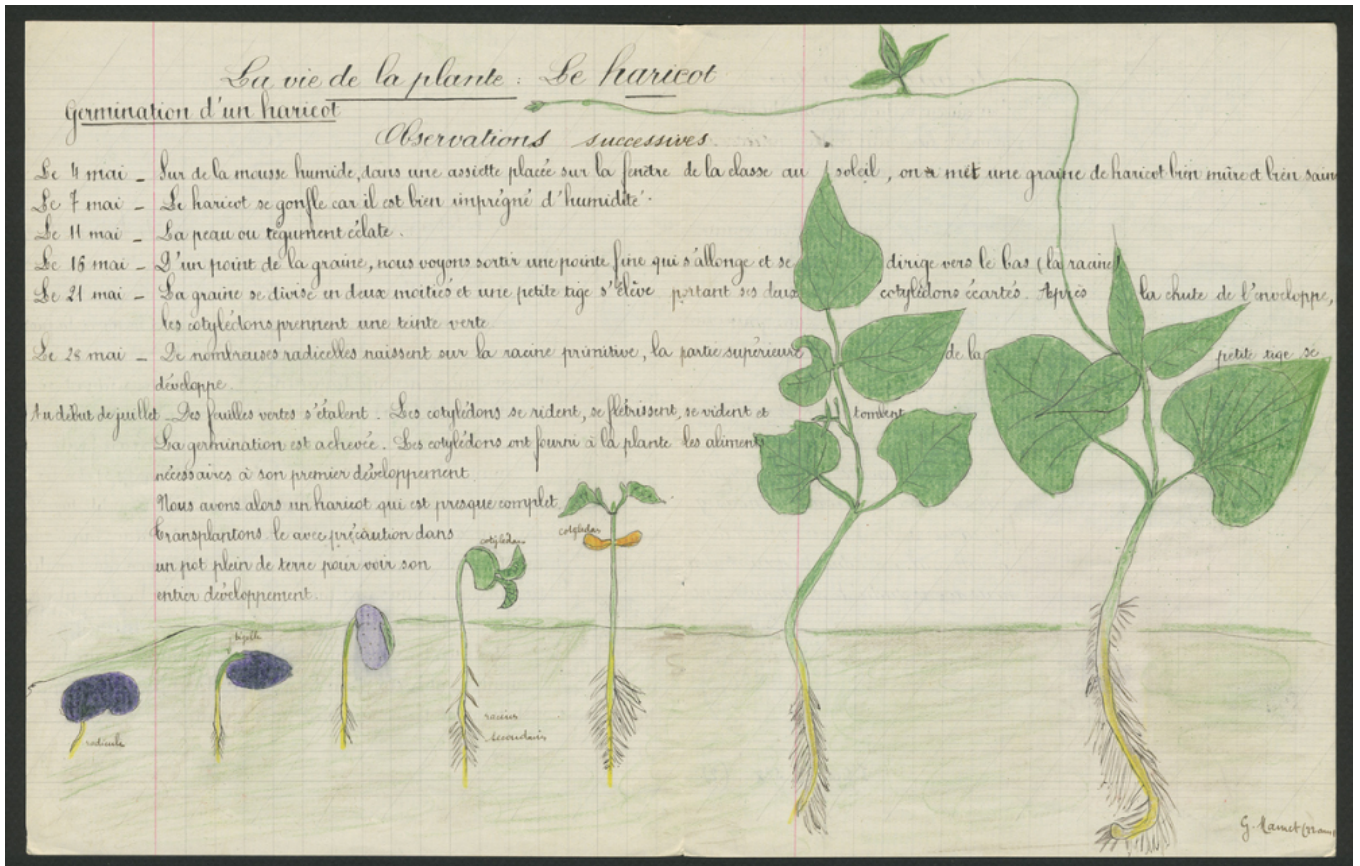 La vie de la plante : Le haricot
Germination d'un haricot
Observations successives.
Le 4 mai - Sur de la mousse humide, dans une assiette placée sur la fenêtre de la classe au soleil, on met une graine de haricot bien mûre et bien saine
Le 7 mai - Le haricot se gonfle car il est bien imprégné d'humidité.
Le 11 mai - La peau ou tégument éclate.
Le 16 mai - D'un point de la graine, nous voyons sortir une pointe fine qui s'allonge et se dirige vers le bas (la racine)
Le 21 mai - La graine se divise en deux moitiés et une petite tige s'élève portant ses deux cotylédons écartés. Après la chute de l'enveloppe,
les cotylédons prennent une teinte verte.
Le 28 mai - De nombreuses radicelles naissent sur la racine primitive, la partie supérieure de la petite tige se
développe.
Au début de juillet. Des feuilles vertes s'étalent. Les cotylédons se rident, se flétrissent, se vident et tombent
La germination est achevée. Les cotylédons ont fourni à la plante les aliments
nécessaires à son premier développement.
Nous avons alors un haricot qui est presque complet
Transplantons le avec précaution dans
un pot plein de terre pour voir son
entier développement.
cotylédon
cotylédon
tigelle
radicule
racines
secondaires
G.